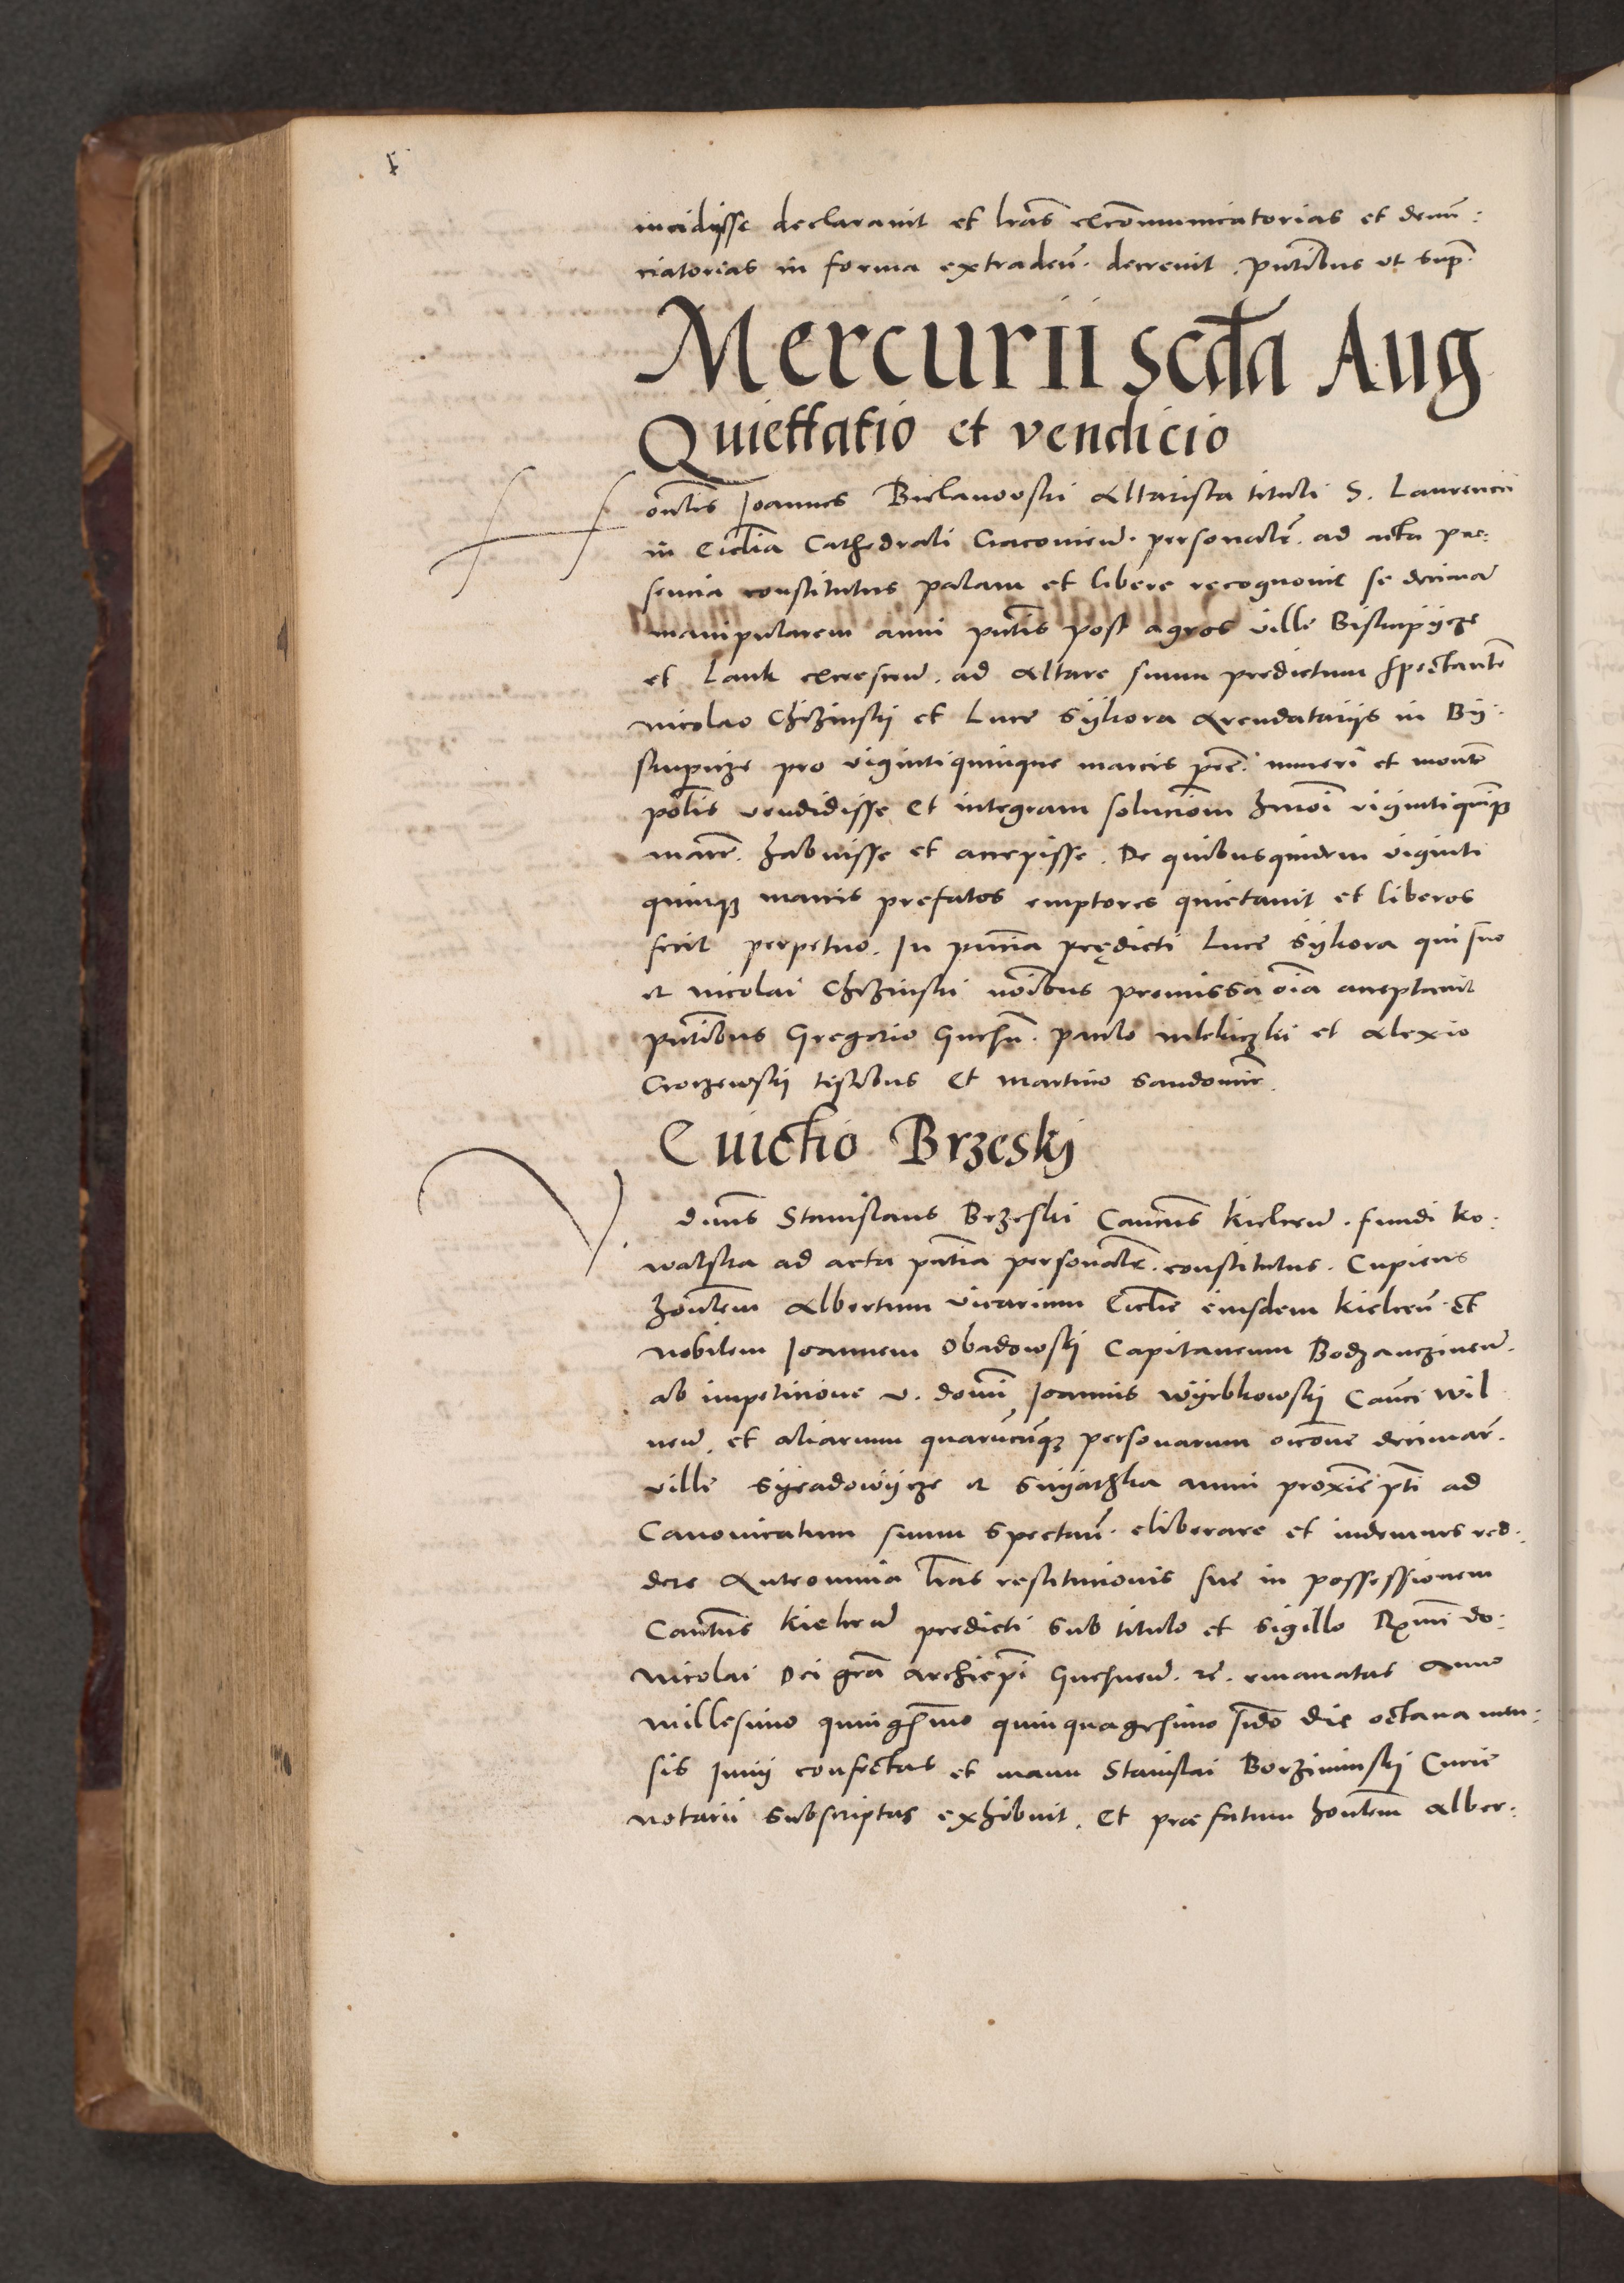 incidisse declaravit et lras excommunicatorias et denun:
ciatorias in forma extraden. decrevit. pntibus ut sup.
Mercurii scda Aug
Quiettatio et vendicio
Honlis Joannes Bielanowski Altarista tituli S. Laurencii
in Ecclia Cathedrali Cracovien. personalr. ad acta pre:
sencia constitutus palam et libere recognovit se decimam
manipularem anni pntis post agros ville Biskupycze
et Lank excrescen. ad Altare suum predictum spectantem
Nicolao Chizinskj et Luce Sykora Arendatariis in By:
skupicze pro viginti quinque marcis pec. numeri et monete
polis vendidisse Et integram solucionem hmoi viginti quinq
marc. habuisse et accepisse. De quibusquidem viginti
quinq marcis prefatos emptores quietavit et liberos
fecit perpetuo. In pncia prędicti Luce Sykora qui suo
et Nicolai Chizinski noibus premissa oia acceptavit
pntibus Gregorio Gnesn. Paulo et Alexio
Croczewskj testibus Et Martino Sandomir.
Evictio Brzeskj
V. dnus Stanislaus Brzeski Cancus Kielcen. fundi Ko:
walska ad acta pntia personalr. constitutus. Cupiens
honlem Albertum vicarium Ecclie eiusdem Kielcen. Et
nobilem Joannem Obadowskj Capitaneum Bodzanczinen.
ab impeticione v. domi Joannis Wyrbkowskj Canci Wil
nen. et aliarum quarucunq personarum occone decimar.
ville Syradowycze et Snyathka anni proxie pti ad
Canonicatum suum spectan. eliberare et indemnes red:
dere Anteomnia lras restitucionis sue in possessionem
Cantus Kielcen predicti sub titulo et sigillo Rxmi do:
Nicolai Dei gra archiepi Gnesnen. rc. emanatas Anno
millesimo quingsmo quinquagesimo sedo die octava men:
sis Junij confectas et manu Stanislai Borziminskj Curie
notarii subscriptas exhibuit. Et prae fatum honlem Alber: